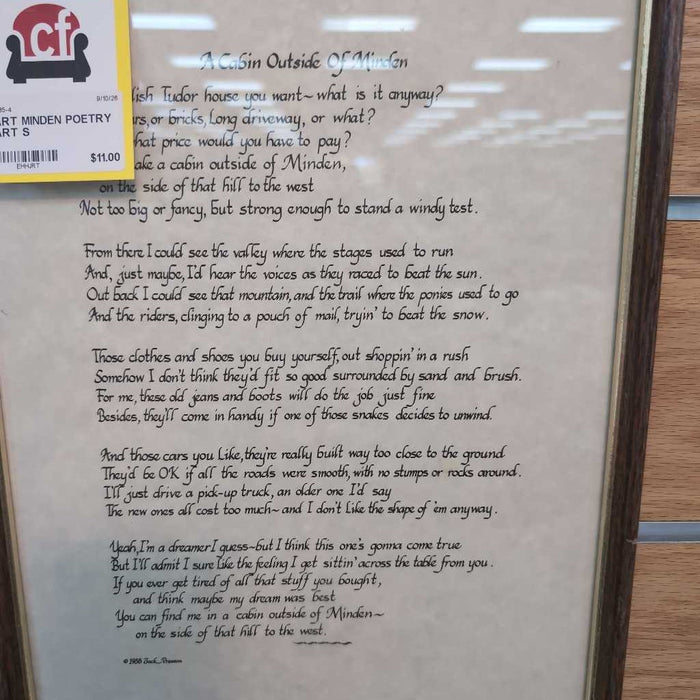 cf
9/10/26
35-4
ART MINDEN POETRY
ART S
EHHJRT
$11.00
A Cabin Outside Of Minden
lish Tudor house you want~ what is it anyway?
rs, or bricks, Long driveway, or what?
hat price would you have to pay?
ake a cabin outside of Minden,
on the side of that hill to the west
Not too big or fancy, but strong enough to stand a windy test.
From there I could see the valley where the stages used to run
And, just maybe, I'd hear the voices as they raced to beat the sun.
Out back I could see that mountain, and the trail where the ponies used to go
And the riders, clinging to a pouch of mail, tryin' to beat the snow.
Those clothes and shoes you buy yourself, out shoppin' in a rush
Somehow I don't think they'd fit so good surrounded by sand and brush.
For me, these old jeans and boots will do the job just fine
Besides, they'll come in handy if one of those snakes decides to unwind.
And those cars you Like, they're really built way too close to the ground
They'd be OK if all the roads were smooth, with no stumps or rocks around.
I'll just drive a pick-up truck, an older one I'd say
The new ones all cost too much~ and I don't Like the shape of 'em anyway.
Yeah, I'm a dreamer I guess~but I think this one's gonna come true
But I'll admit I sure like the feeling I get sittin' across the table from you.
If you ever get tired of all that stuff you bought,
and think maybe my dream was best
You can find me in a cabin outside of Minden~
on the side of that hill to the west.
© 1988